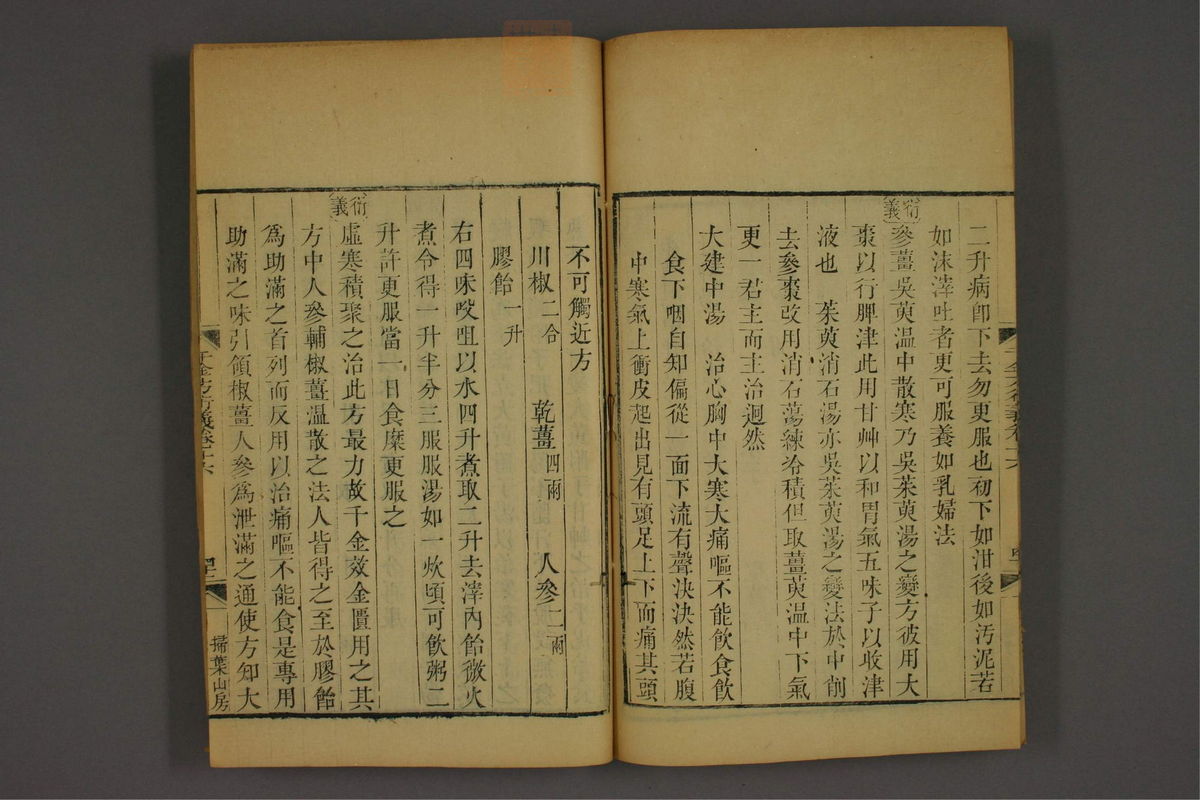 二升病卽下去勿更服也初下如泔後如汚泥若
如沫滓吐者更可服養如乳婦法
衍義
參薑吳萸温中散寒乃吳茱萸湯之變方彼用大
棗以行脾津此用甘艸以和胃氣五味子以收津
液也　茱萸消石湯亦吳茱萸湯之變法於中削
去參棗改用消石蕩練冷積但取薑萸温中下氣
更一君主而主治迥然
大建中湯　治心胸中大寒大痛嘔不能飲食飲
食下咽自知偏從一面下流有聲決決然若腹
中寒氣上衝皮起出見有頭足上下而痛其頭
不可觸近方
川椒二合　乾薑四兩　人參二兩
膠飴一升
右四味㕮咀以水四升煮取二升去滓內飴微火
煮令得一升半分三服服湯如一炊頃可飲粥二
升許更服當一日食糜更服之
衍義
虛寒積聚之治此方最力故千金效金匱用之其
方中人參輔椒薑温散之法人皆得之至於膠飴
爲助滿之首列而反用以治痛嘔不能食是專用
助滿之味引領椒薑人參爲泄滿之通使方知大
千金方衍義卷十六
掃葉山房